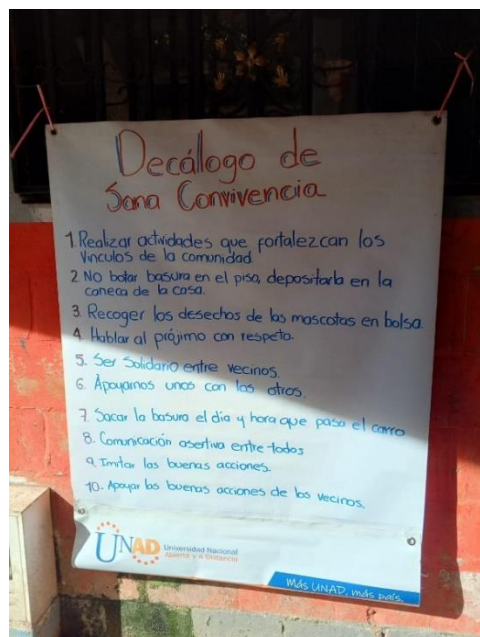 Decálogo de
Sana Convivencia
1. Realizar actividades que fortalezcan los
vinculos de la comunidad
2. NO botar basura en el piso, depositarla en la
caneca de la casa.
3. Recoger los desechos de las mascotas en bolsa.
4. Hablar al prójimo con respeto.
5. Ser Solidario entre vecinos.
6. Apoyarnos unos con los otros.
7. Sacar la basura el dia y hora que pasa el carro
8. Comunicación asertiva entre todos
9. Imitar las buenas acciones.
10. Apoyar las buenas acciones de los vecinos.
UNAD Universidad Nacional
Abierta y a Distancia
Más UNAD, más país.